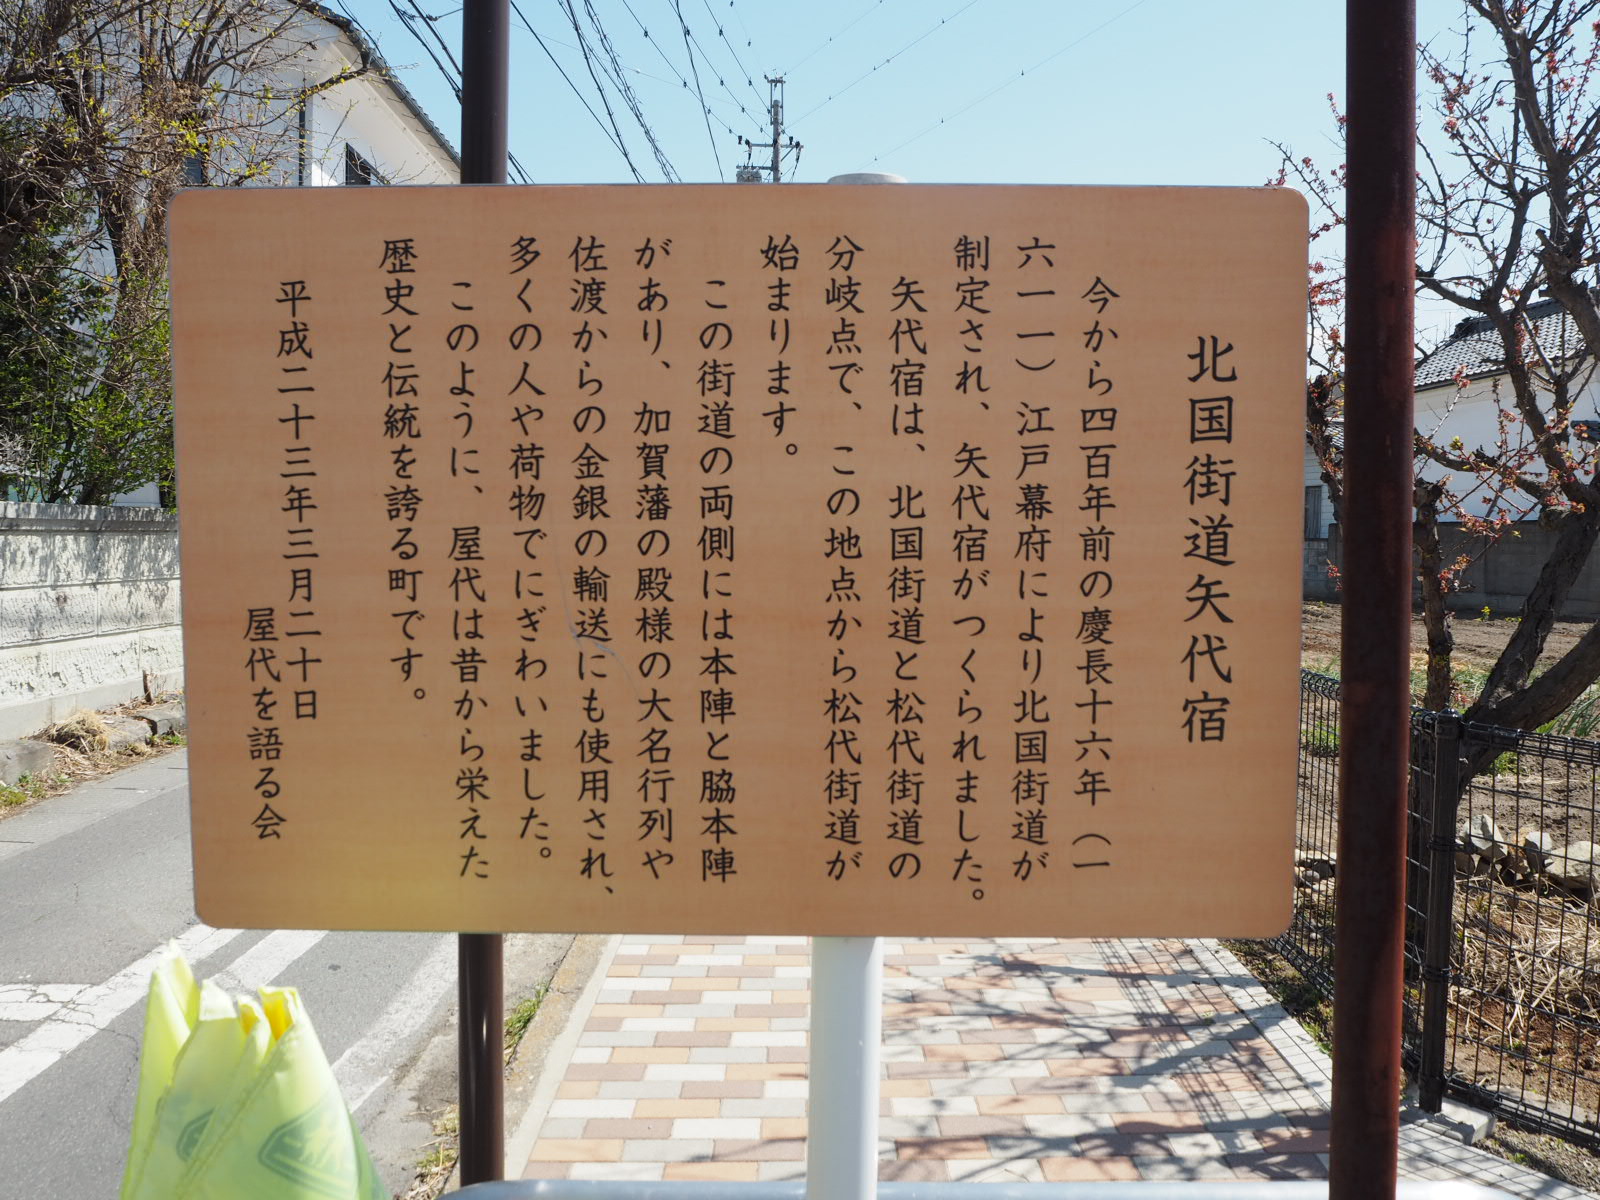 北国街道矢代宿
今から四百年前の慶長十六年（一
六一一）江戸幕府により北国街道が
制定され、矢代宿がつくられました。
矢代宿は、北国街道と松代街道の
分岐点で、この地点から松代街道が
始まります。
この街道の両側には本陣と脇本陣
があり、加賀藩の殿様の大名行列や
佐渡からの金銀の輸送にも使用され、
多くの人や荷物でにぎわいました。
このように、屋代は昔から栄えた
歴史と伝統を誇る町です。
平成二十三年三月二十日
屋代を語る会